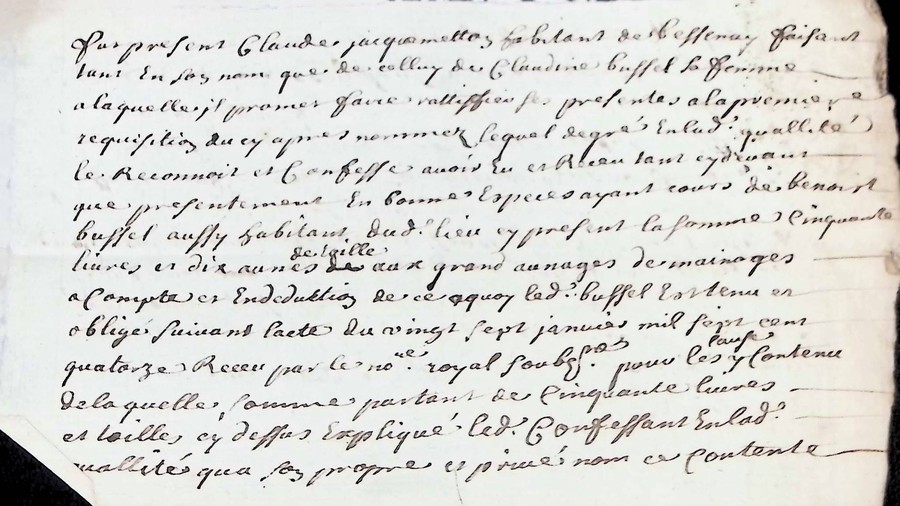 fut present Claude jacquemetton habitant de bessenay faisant
tant En son nom que de celluy de Claudine bussel sa femme
a laquelle jl promet faire rattiffier ses presentes a la premiere
requisition du cy apres nommez lequel de gré En lad.^e quallité
le Reconnoit et Confesse avoir Eu et Receu tant cy devant
que presentement En bonne Especes ayant cours de benoist
bussel aussy habitant dud.^t lieu cy present la somme Cinquante
livres et dix aunes de toille aux grand aunages de mainages
a Compte et En deduktion de ce a quoy led.^t bussel Est tenu et
obligé suivant lacte du vingt sept janvier mil sept cent
quatorze Receu par le no.^re royal soubz.^né pour les cause y Contenu
de la quelle somme partant de Cinquante livres
et toilles cy dessus Expliqué led.^t Confessant En lad.^e
quallité qua son propre et privé nom ce contente